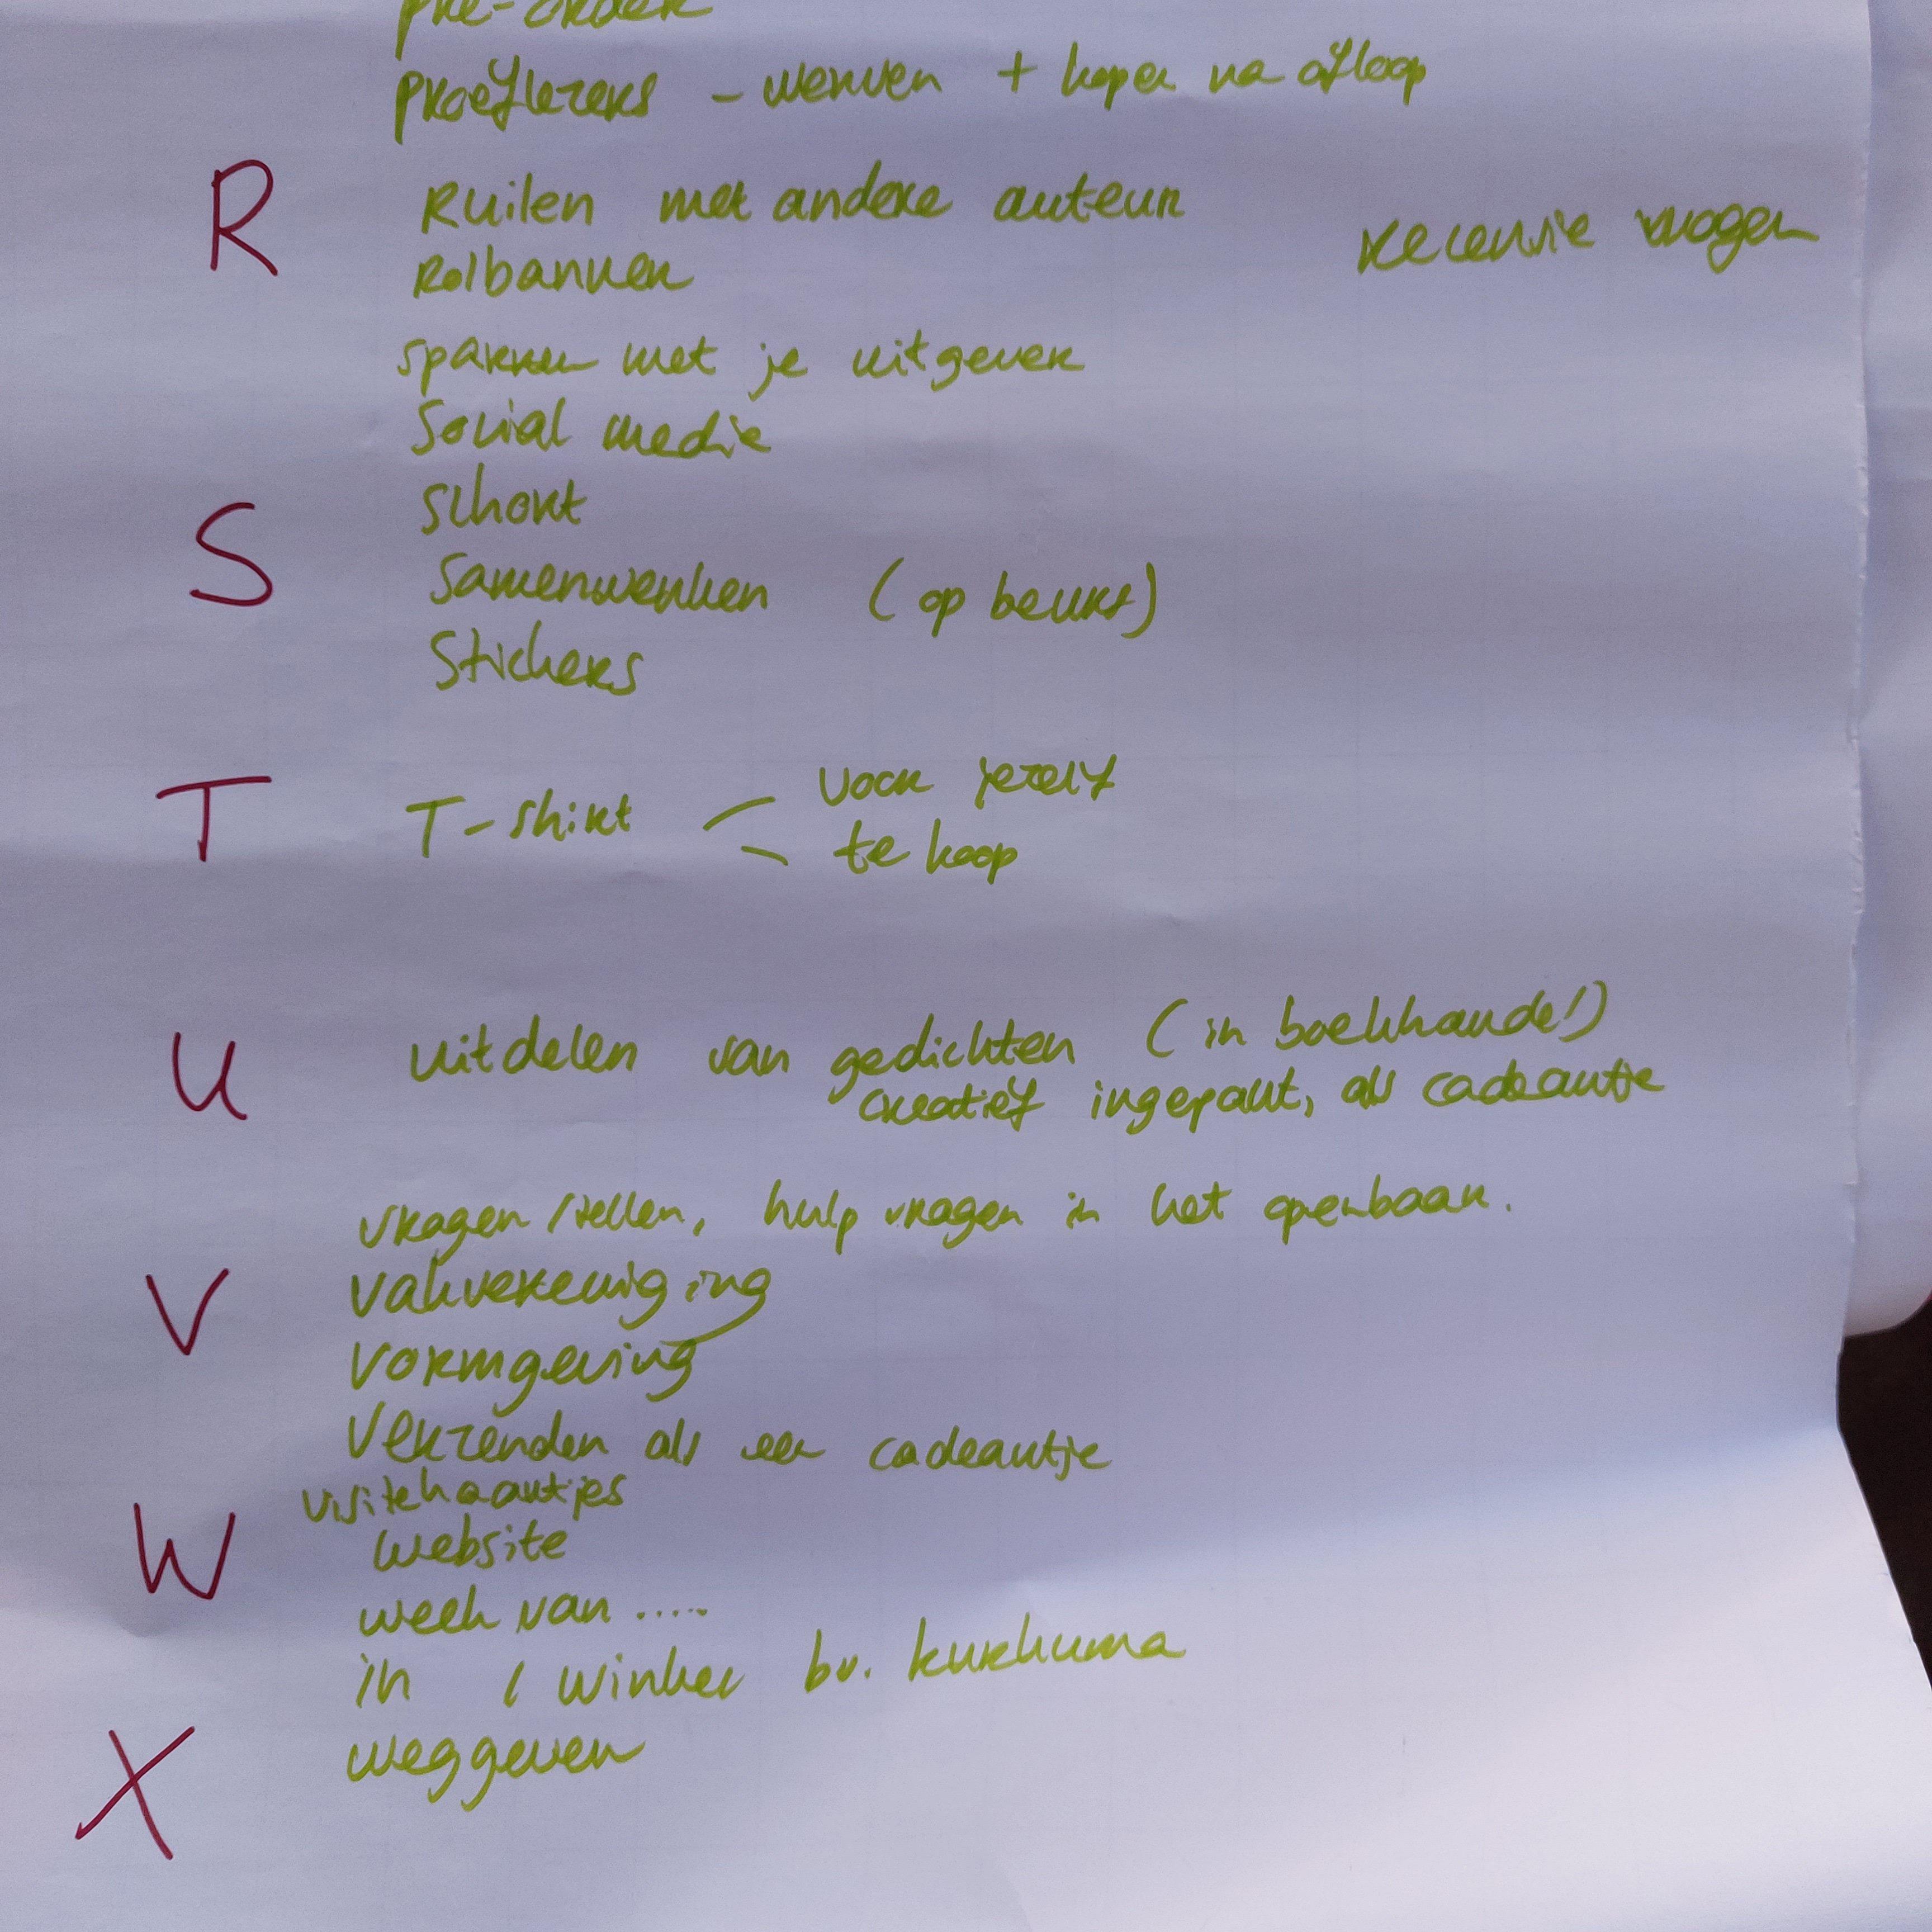 pre-order
proeflezers - werven + kopen na afloop
R
Ruilen met andere auteur
recensie vragen
Rolbanner
sparren met je uitgever
Social media
S
Schort
Samenwerken (op beurs)
Stickers
T
T-shirt
voor jezelf
te koop
U
uitdelen van gedichten (in boekhandel)
creatief ingepakt, als cadeautje
vragen stellen, hulp vragen in het openbaar.
V
Vakvereniging
Vormgeving
Verzenden als een cadeautje
visitekaartjes
W
Website
week van .....
in 1 winkel bv. kurkuma
X
weggeven